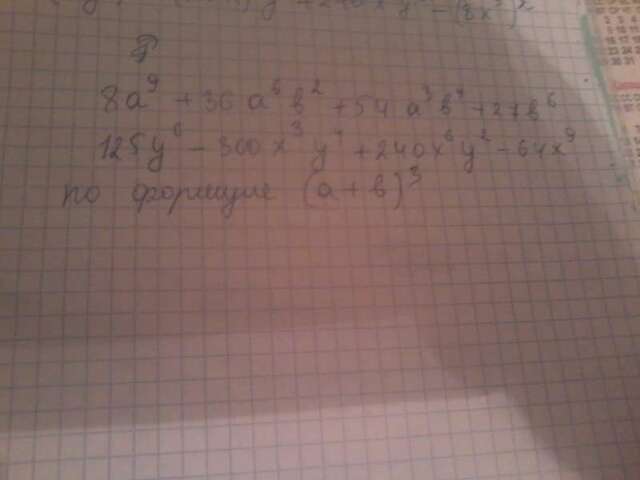 8a⁹ + 36 a⁶ b² + 54 a³ b⁴ + 27b⁶
125y⁶ - 300x³ y⁴ + 240x⁶y² - 64x⁹
по формуле (a + b)³